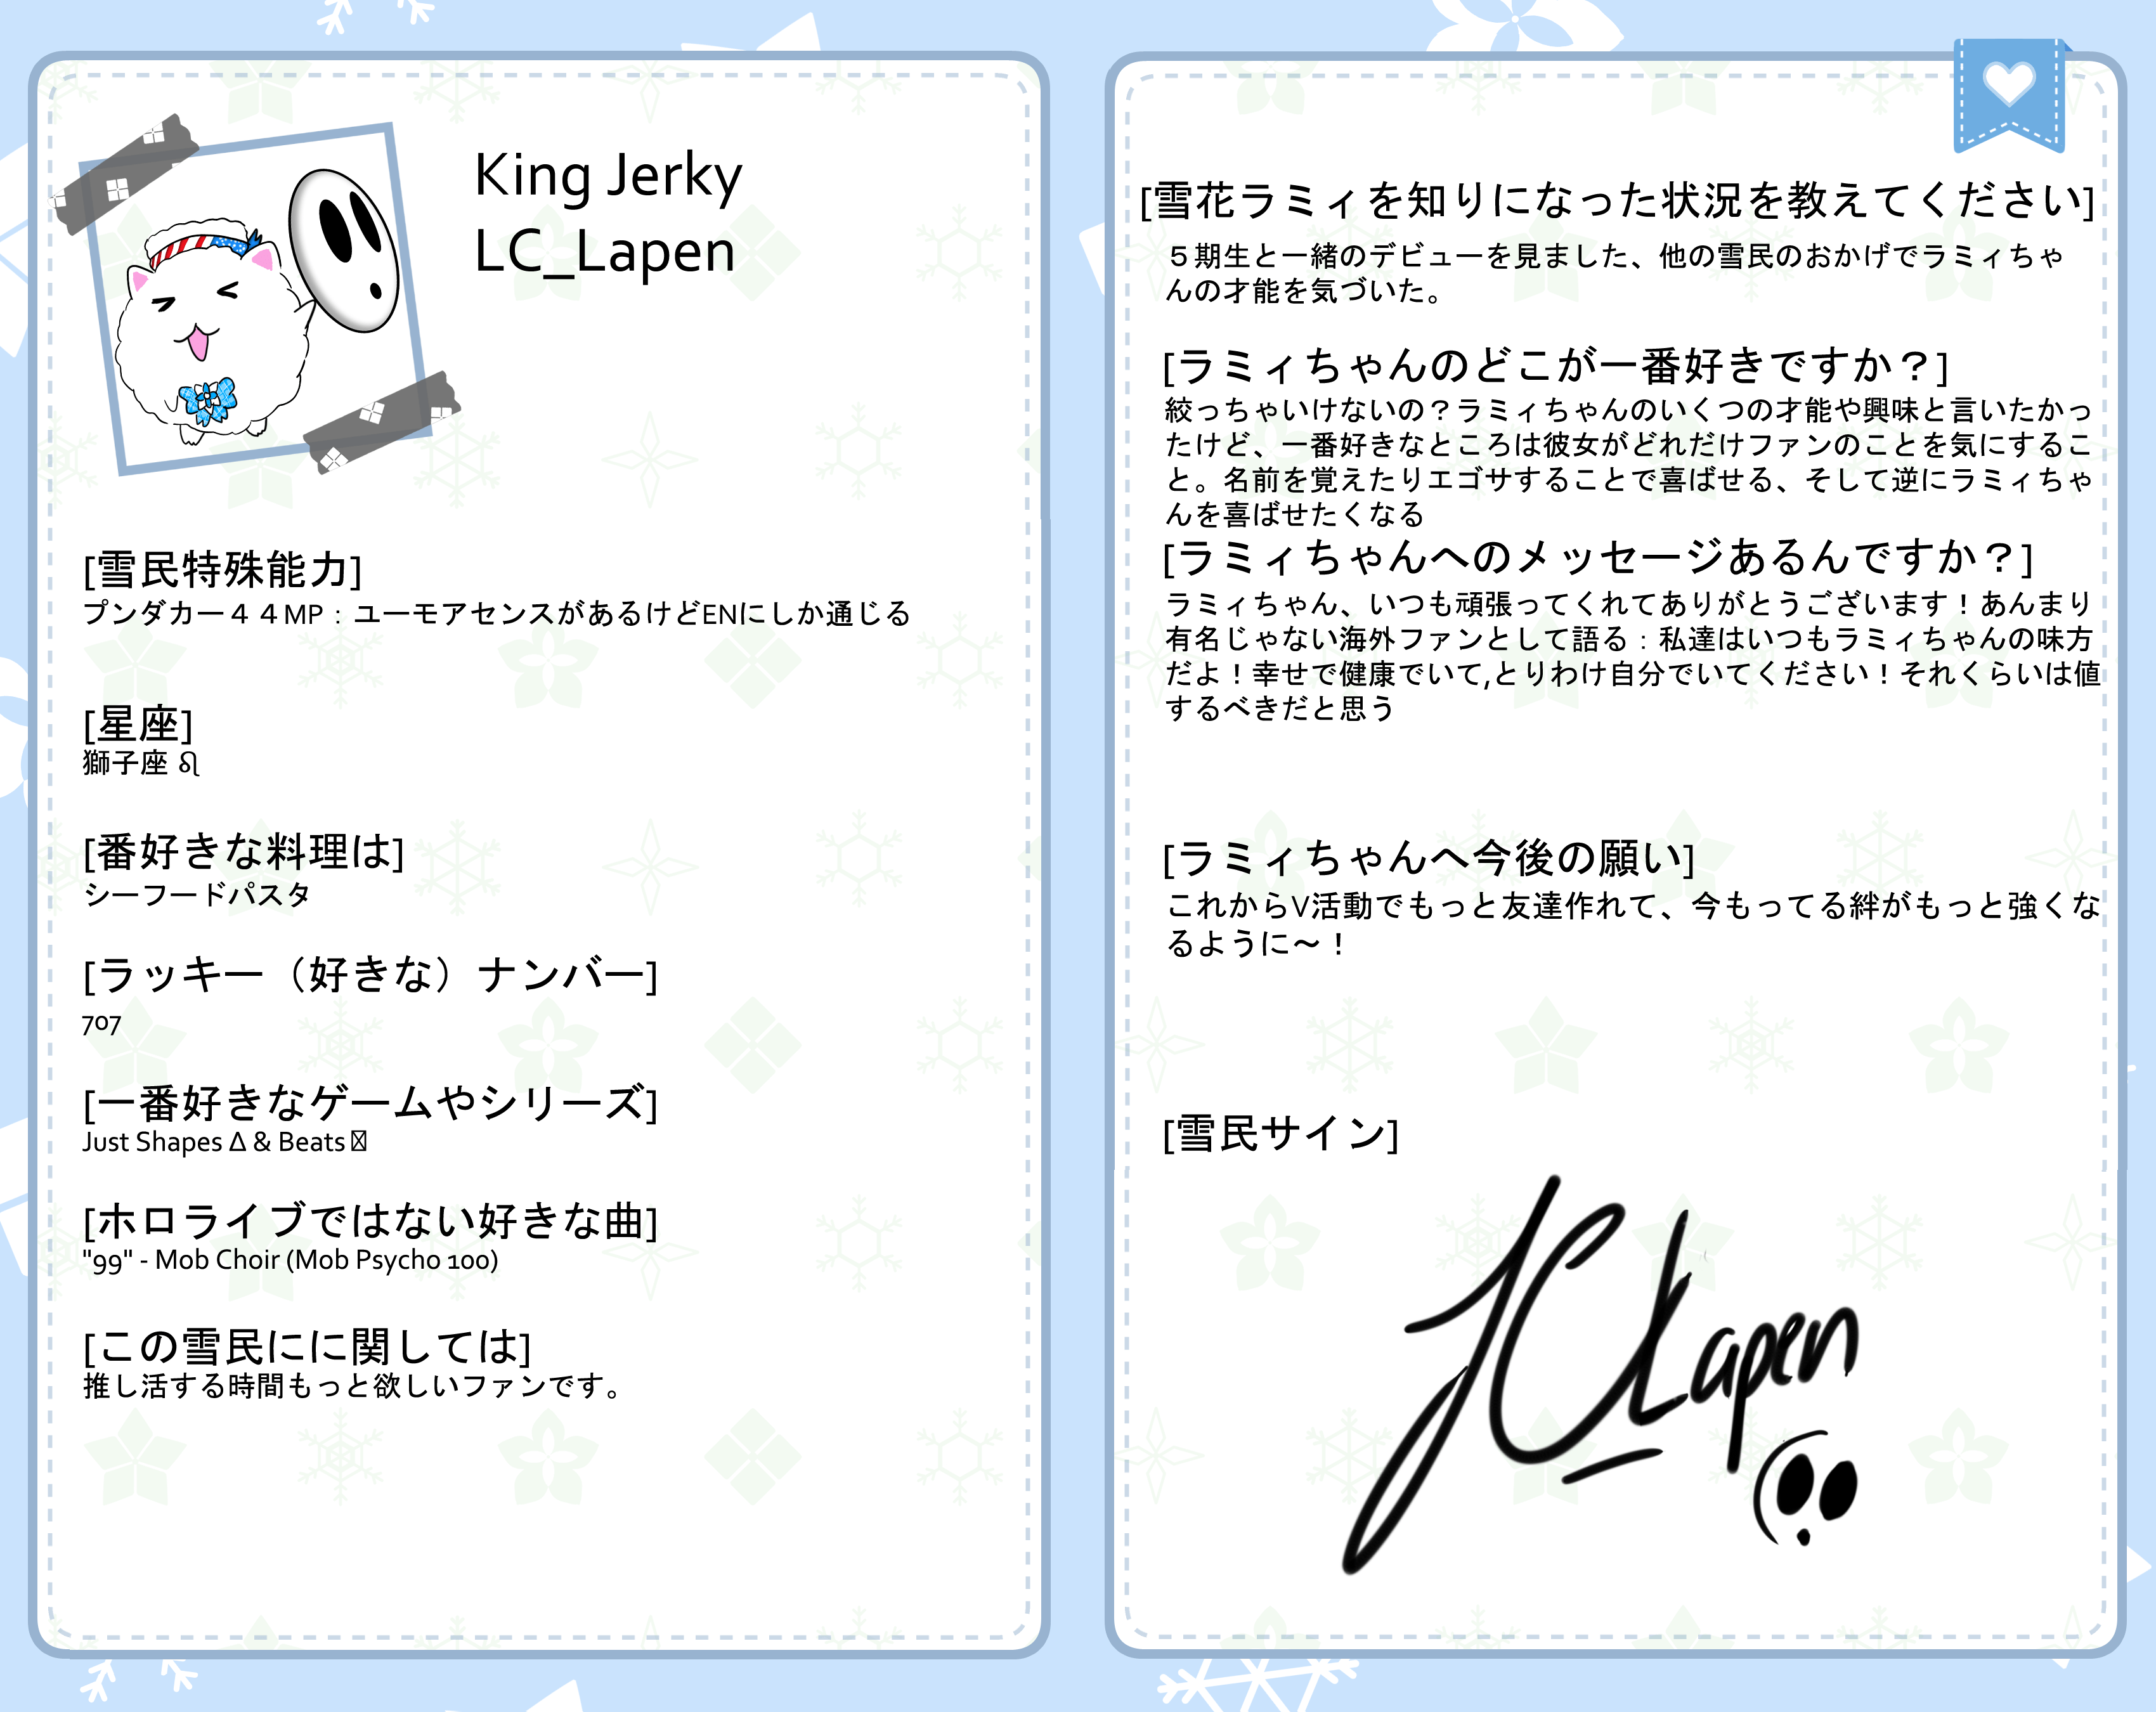 King Jerky
LC_Lapen
[雪民特殊能力]
プンダカー４４MP：ユーモアセンスがあるけどENにしか通じる
[星座]
獅子座 ♌
[番好きな料理は]
シーフードパスタ
[ラッキー（好きな）ナンバー]
707
[一番好きなゲームやシリーズ]
Just Shapes Δ & Beats
[ホロライブではない好きな曲]
"99" - Mob Choir (Mob Psycho 100)
[この雪民にに関しては]
推し活する時間もっと欲しいファンです。
[雪花ラミィを知りになった状況を教えてください]
５期生と一緒のデビューを見ました、他の雪民のおかげでラミィちゃ
んの才能を気づいた。
[ラミィちゃんのどこが一番好きですか？]
絞っちゃいけないの？ラミィちゃんのいくつの才能や興味と言いたかっ
たけど、一番好きなところは彼女がどれだけファンのことを気にするこ
と。名前を覚えたりエゴサすることで喜ばせる、そして逆にラミィちゃ
んを喜ばせたくなる
[ラミィちゃんへのメッセージあるんですか？]
ラミィちゃん、いつも頑張ってくれてありがとうございます！あんまり
有名じゃない海外ファンとして語る：私達はいつもラミィちゃんの味方
だよ！幸せで健康でいて,とりわけ自分でいてください！それくらいは値
するべきだと思う
[ラミィちゃんへ今後の願い]
これからV活動でもっと友達作れて、今もってる絆がもっと強くな
るように～！
[雪民サイン]
LC Lapen